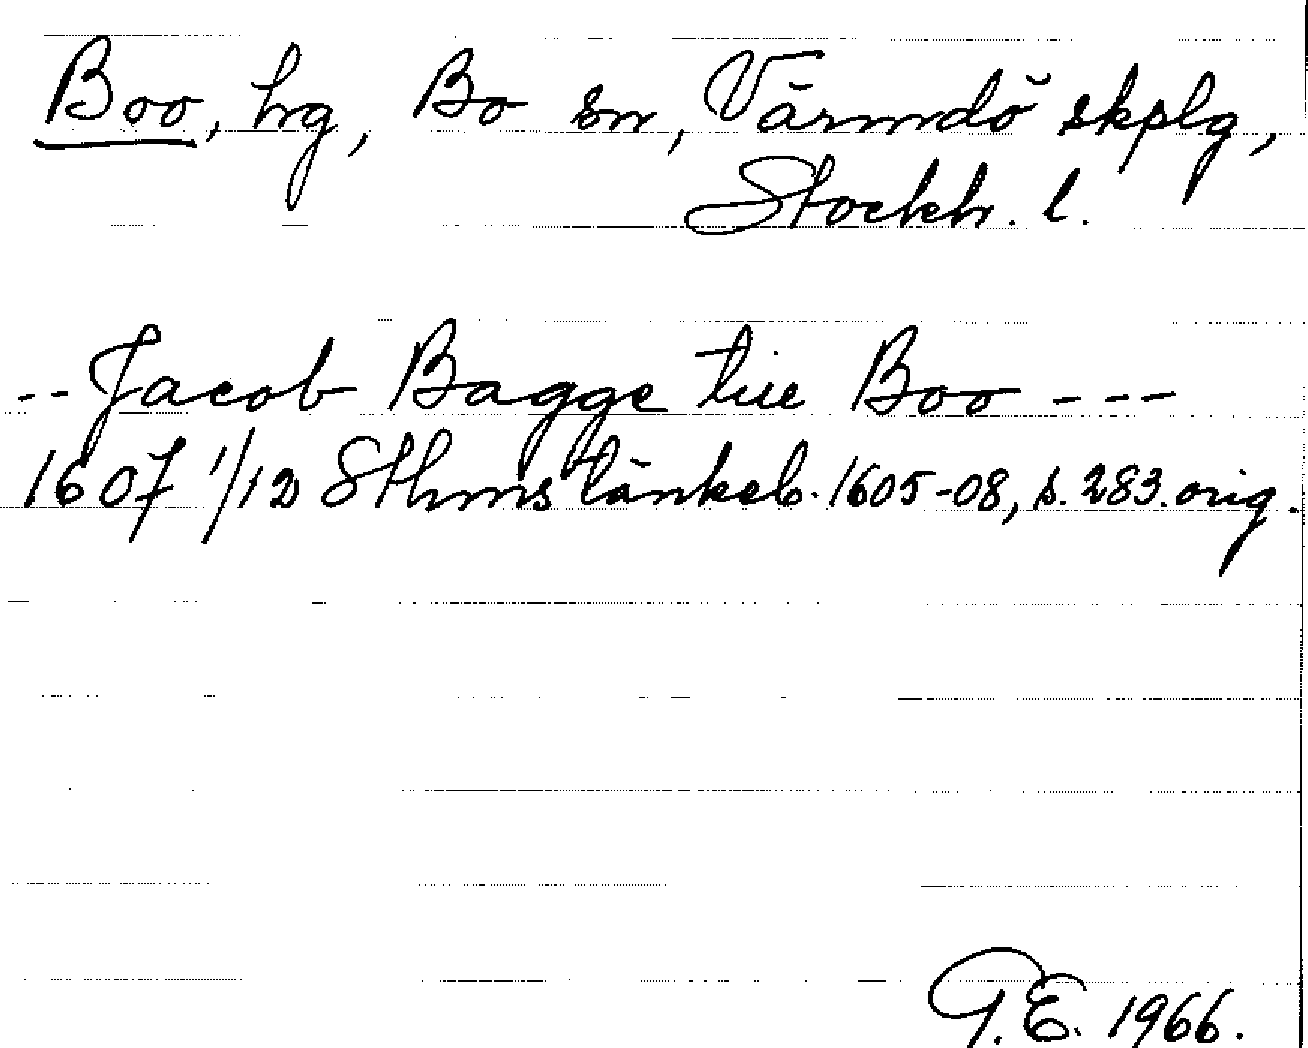 Boo, hg, Bo sn, Värmdö skplg,
Stockh. l.
-- Jacob Bagge till Boo ---
1607 1/12 Sthms tänkeb. 1605-08, s. 283. orig.
G.E. 1966.